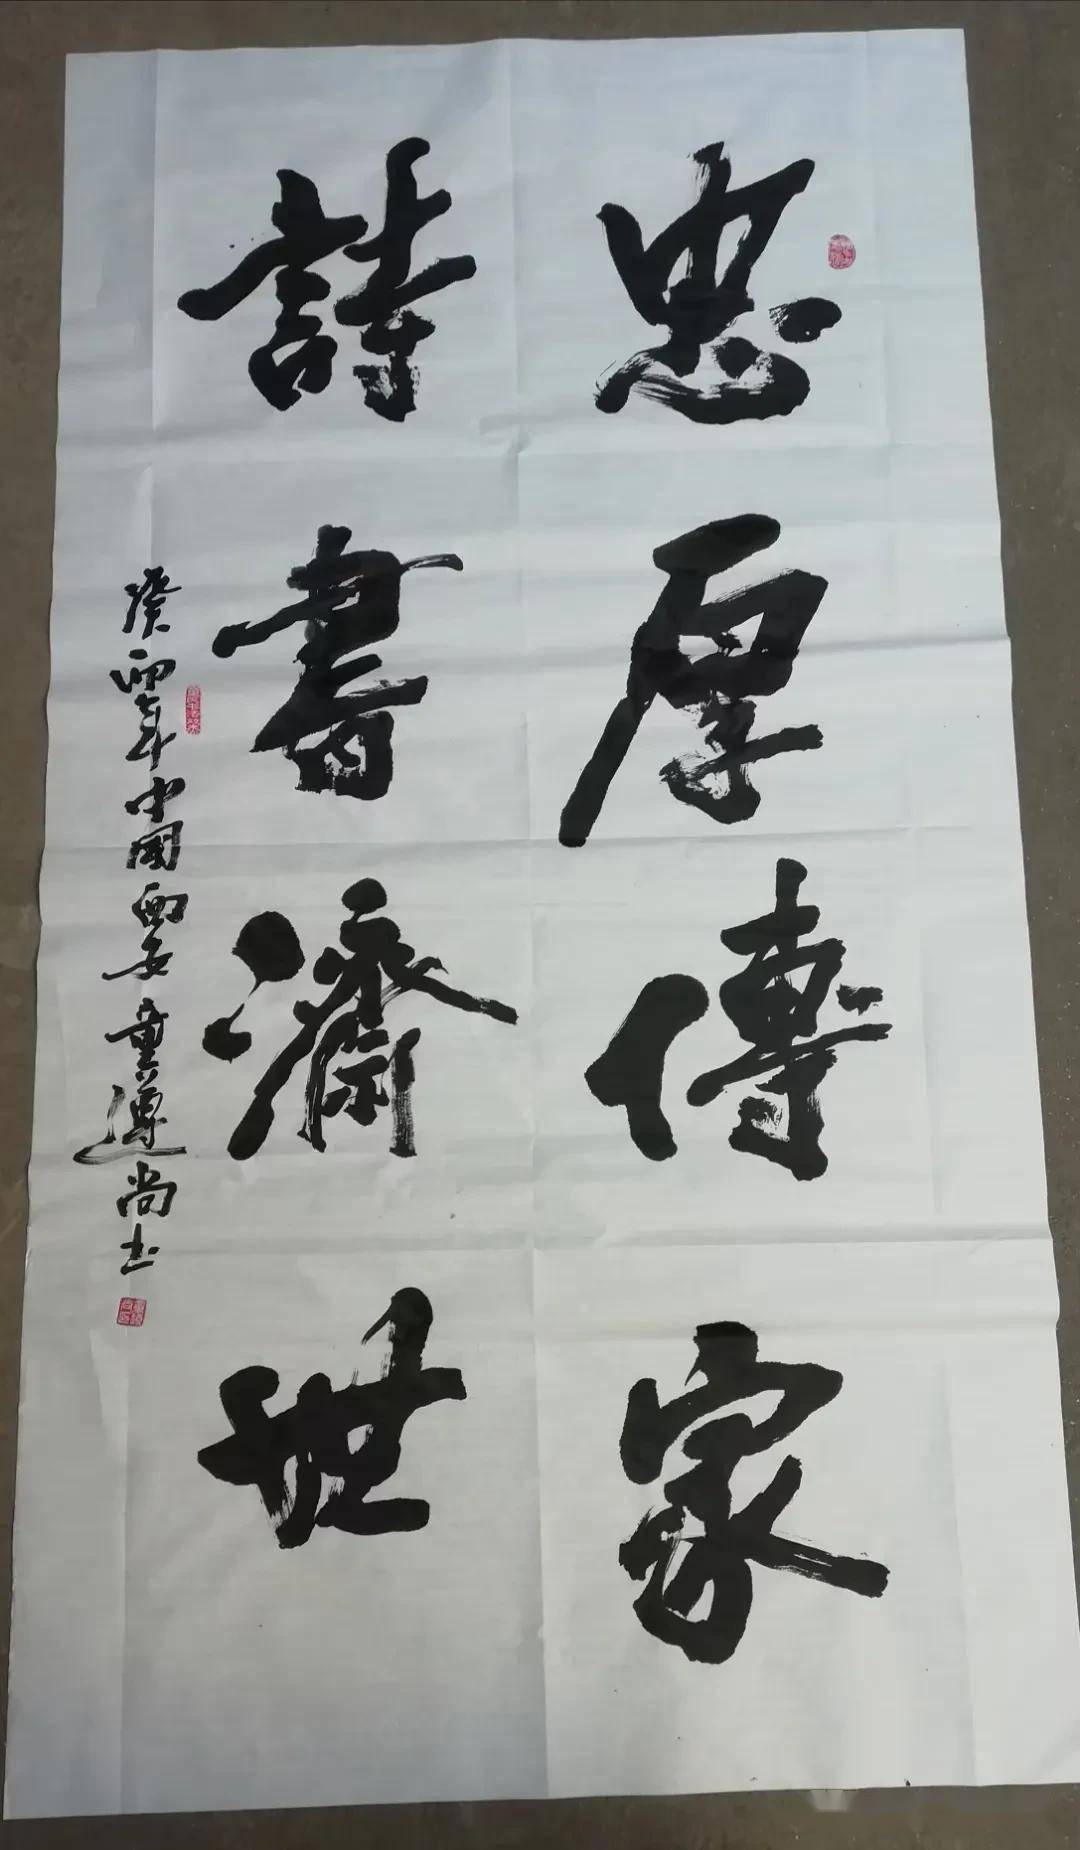 忠厚傳家
詩書濟世
癸卯年中國西安童遵尚书